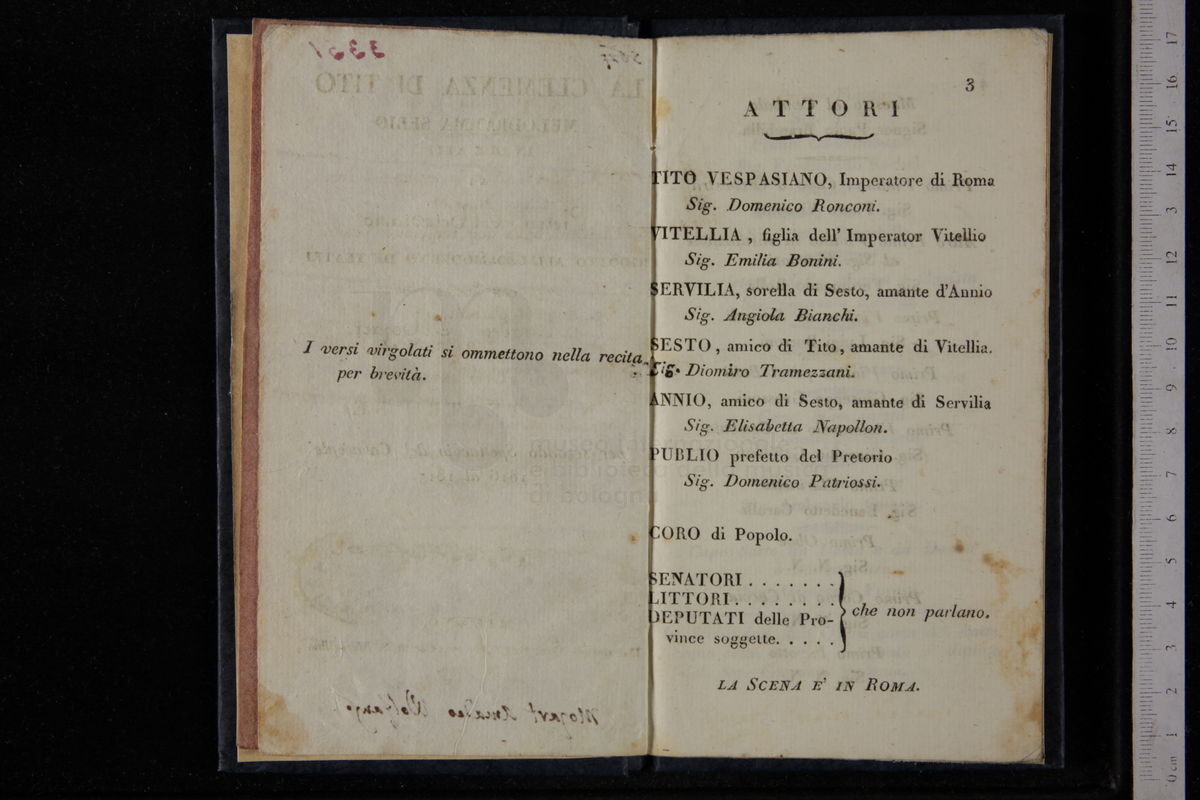 I versi virgolati si ommettono nella recita
per brevità.
3
ATTORI
TITO VESPASIANO, Imperatore di Roma
Sig. Domenico Ronconi.
VITELLIA , figlia dell' Imperator Vitellio
Sig. Emilia Bonini.
SERVILIA, sorella di Sesto, amante d'Annio
Sig. Angiola Bianchi.
SESTO , amico di Tito, amante di Vitellia.
Sig. Diomiro Tramezzani.
ANNIO, amico di Sesto, amante di Servilia
Sig. Elisabetta Napollon.
PUBLIO prefetto del Pretorio
Sig. Domenico Patriossi.
CORO di Popolo.
SENATORI . . . . . . .
LITTORI. . . . . . . .
DEPUTATI delle Pro-
vince soggette. . . . .
che non parlano.
LA SCENA E' IN ROMA.
museo internazionale
e biblioteca della musica
di bologna
0 cm 1 2 3 4 5 6 7 8 9 10 11 12 13 14 15 16 17